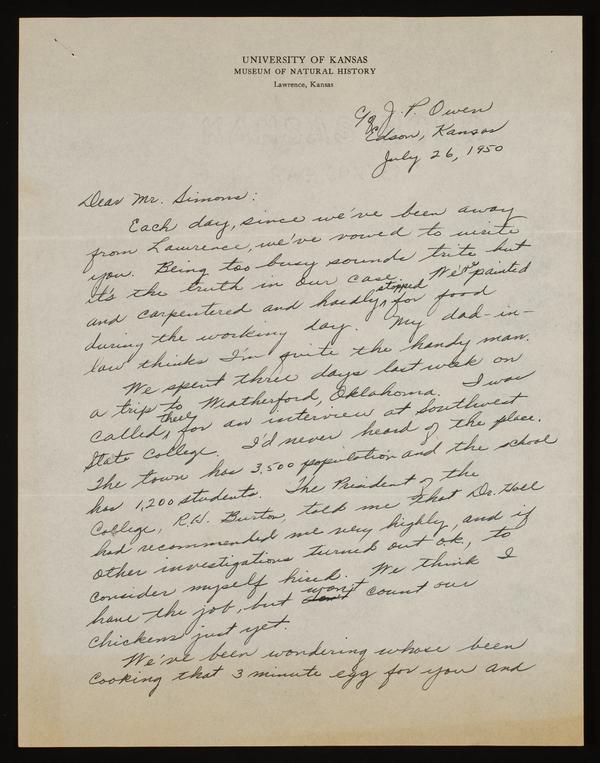 UNIVERSITY OF KANSAS
MUSEUM OF NATURAL HISTORY
Lawrence, Kansas
c/o J. P. Owen
Edson, Kansas
July 26, 1950
Dear Mr. Simons:
Each day, since we've been away
from Lawrence, we've vowed to write
you. Being too busy sounds trite but
it's the truth in our case. We've painted
and carpentered and hardly stopped for food
during the working day. My dad-in-
law thinks I'm quite the handy man.
We spent three days last week on
a trip to Weatherford, Oklahoma. I was
called there for an interview at Southwest
State College. I'd never heard of the place.
The town has 3,500 population and the school
has 1,200 students. The President of the
College, R.H. Burton, told me that Dr. Hall
had recommended me very highly, and if
other investigations turned out o.k., to
consider myself hired. We think I
have the job, but won't count our
chickens just yet.
We've been wondering whose been
cooking that 3 minute egg for you and